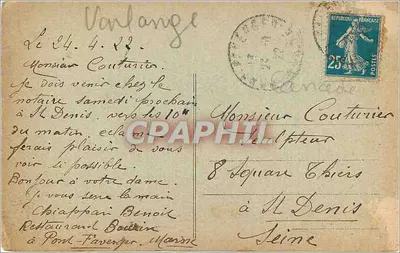 Vorlange
Le 24.4.22
Monsieur Couturier
Je dois venir chez le
notaire samedi prochain
à St Denis vers les 10h
du matin et
ferais plaisir de vous
voir si possible.
Bonjour à votre dame.
je vous serre la main
Chiappari Benoit
Restaurant
à Pont-Faverger, Marne
REPUBLIQUE FRANÇAISE
25c
POSTES
Monsieur Couturier
Sculpteur
8 Square Thiers
à St Denis
Seine
CPARAPHIL.COM